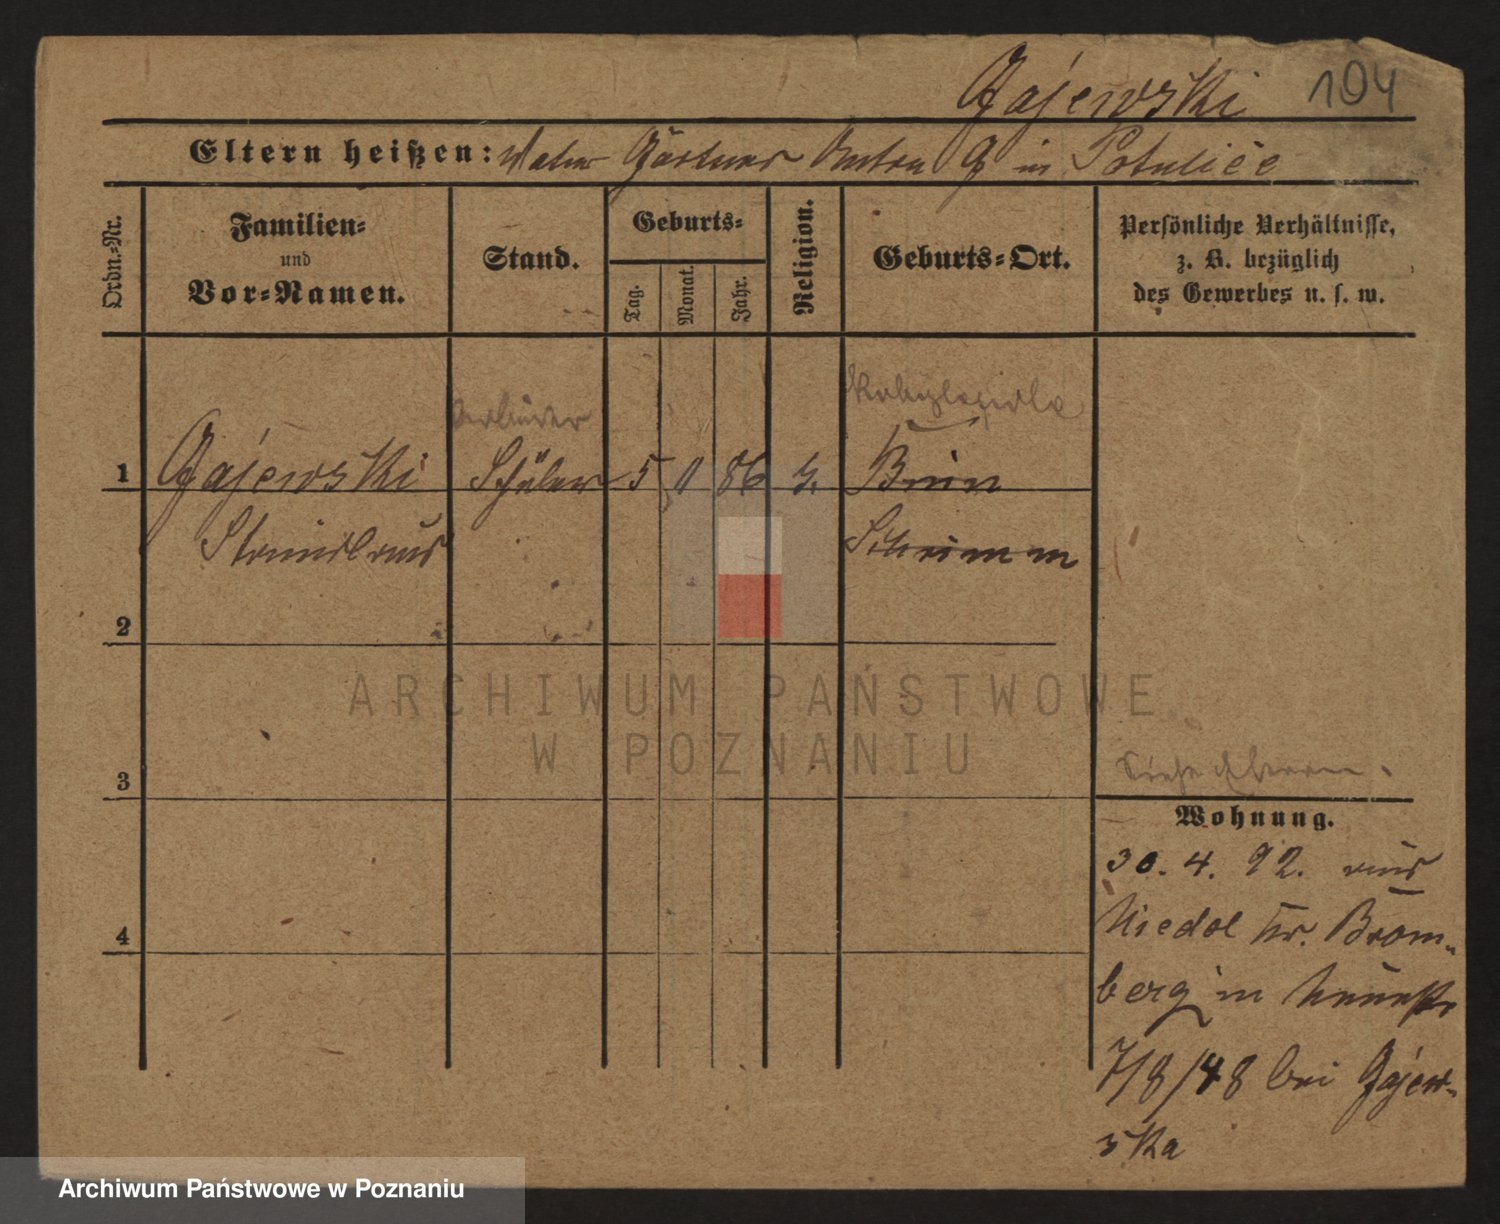 Gajewski 104
Eltern heißen: Vater Gärtner Anton G in Potulice
Ordn.-Nr.
Familien-
und
Vor-Namen.
Stand.
Geburts-
Tag.
Monat.
Jahr.
Religion.
Geburts-Ort.
Persönliche Verhältnisse,
z. B. bezüglich
des Gewerbes u. s. w.
1 Gajewski Schüler 5 86 Bnin
Stanislaus Schrimm
2
3
4
ARCHIWUM PAŃSTWOWE
W POZNANIU
Siehe
Wohnung.
30. 4. 92. aus
Niedol Kr. Brom-
berg in
7/8/48 bei Gajew-
ska
Archiwum Państwowe w Poznaniu